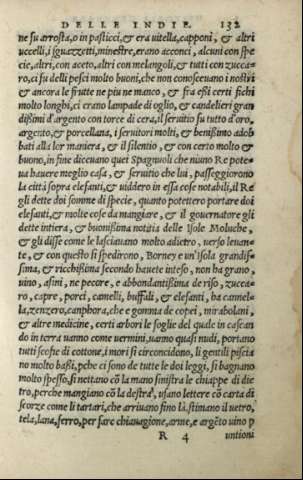 DELLE INDIE. 132
ne su arrosta, o in pasticci, & era uitella, capponi, & altri
uccelli, i guazzetti, minestre, erano acconci, alcuni con spe
cie, altri, con aceto, altri con melangoli, & tutti con zucca-
ro, ci fu delli pesci molto buoni, che non conosceuano i nostri
& ancora le frutte ne piu ne manco, & fra essi certi fichi
molto longhi, ci erano lampade di oglio, & candelieri gran
dissimi d'argento con torce di cera, il seruitio fu tutto d'oro,
argento, & porcellana, i seruitori molti, & benissimo adob
bati alla lor maniera, & il silentio, & con certo molto &
buono, in fine diceuano quei Spagnuoli che niuno Re pote-
ua hauere meglio casa, & seruitio che lui, passeggiorono
la città sopra elefanti, & uiddero in essa cose notabili, il Re
gli dette doi somme di specie, quanto potettero portare doi
elefanti, & molte cose da mangiare, & il gouernatore gli
dette intiera, & buonissima notitia delle Isole Moluche,
& gli disse come le lasciauano molto adietro, uerso leuan-
te, & con questo si spedirono, Borney e un'Isola grandis-
sima, & ricchissima secondo hauete inteso, non ha grano,
uino, asini, ne pecore, e abbondantissima de riso, zucca-
ro, capre, porci, camelli, buffali, & elefanti, ha cannel-
la, zenzero, canphora, che e gomma de copei, mirabolani,
& altre medicine, certi arbori le foglie del quale in cascan
do in terra uanno come uermini, uanno quasi nudi, portano
tutti scofie di cottone, i mori si circoncidono, li gentili piscia
no molto bassi, pche ci sono de tutte le doi leggi, si bagnano
molto spesso, si nettano cõ la mano sinistra le chiappe di die
tro, perche mangiano cõ la destra, usano lettere cõ carta di
scorze come li tartari, che arriuano fino là, stimano il uetro,
tela, lana, ferro, per fare chiauagione, arme, e argẽto uiuo p
R 4 untioni